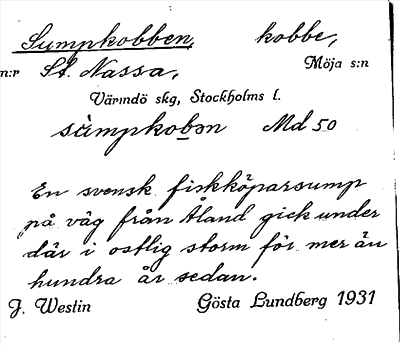 Sumpkobben, kobbe,
n:r St. Nassa, Möja s:n
Värmdö skg, Stockholms l.
sùmpkobən Md 50
En svensk fiskköparsump
på väg från Åland gick under
där i ostlig storm för mer än
hundra år sedan.
J. Westin Gösta Lundberg 1931